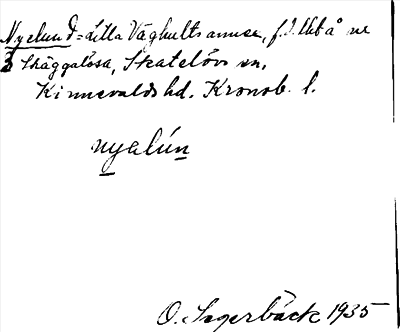 Nyelund = Lilla Våghults annuse, f. d. lhb å nr
3 Skäggalösa, Skatelövs sn,
Kinnevalds hd. Kronob. l.
nyalún
O. Sagerbäck 1935